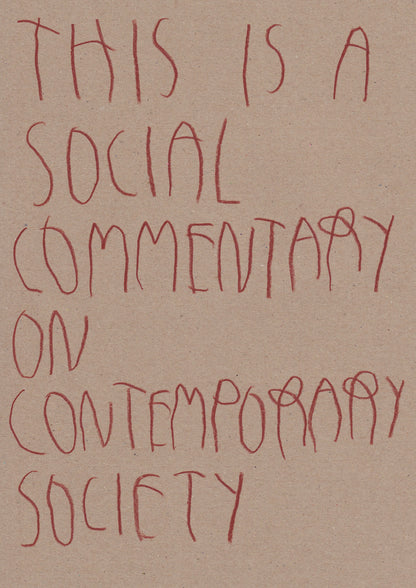 THIS IS A
SOCIAL
COMMENTARY
ON
CONTEMPORARY
SOCIETY